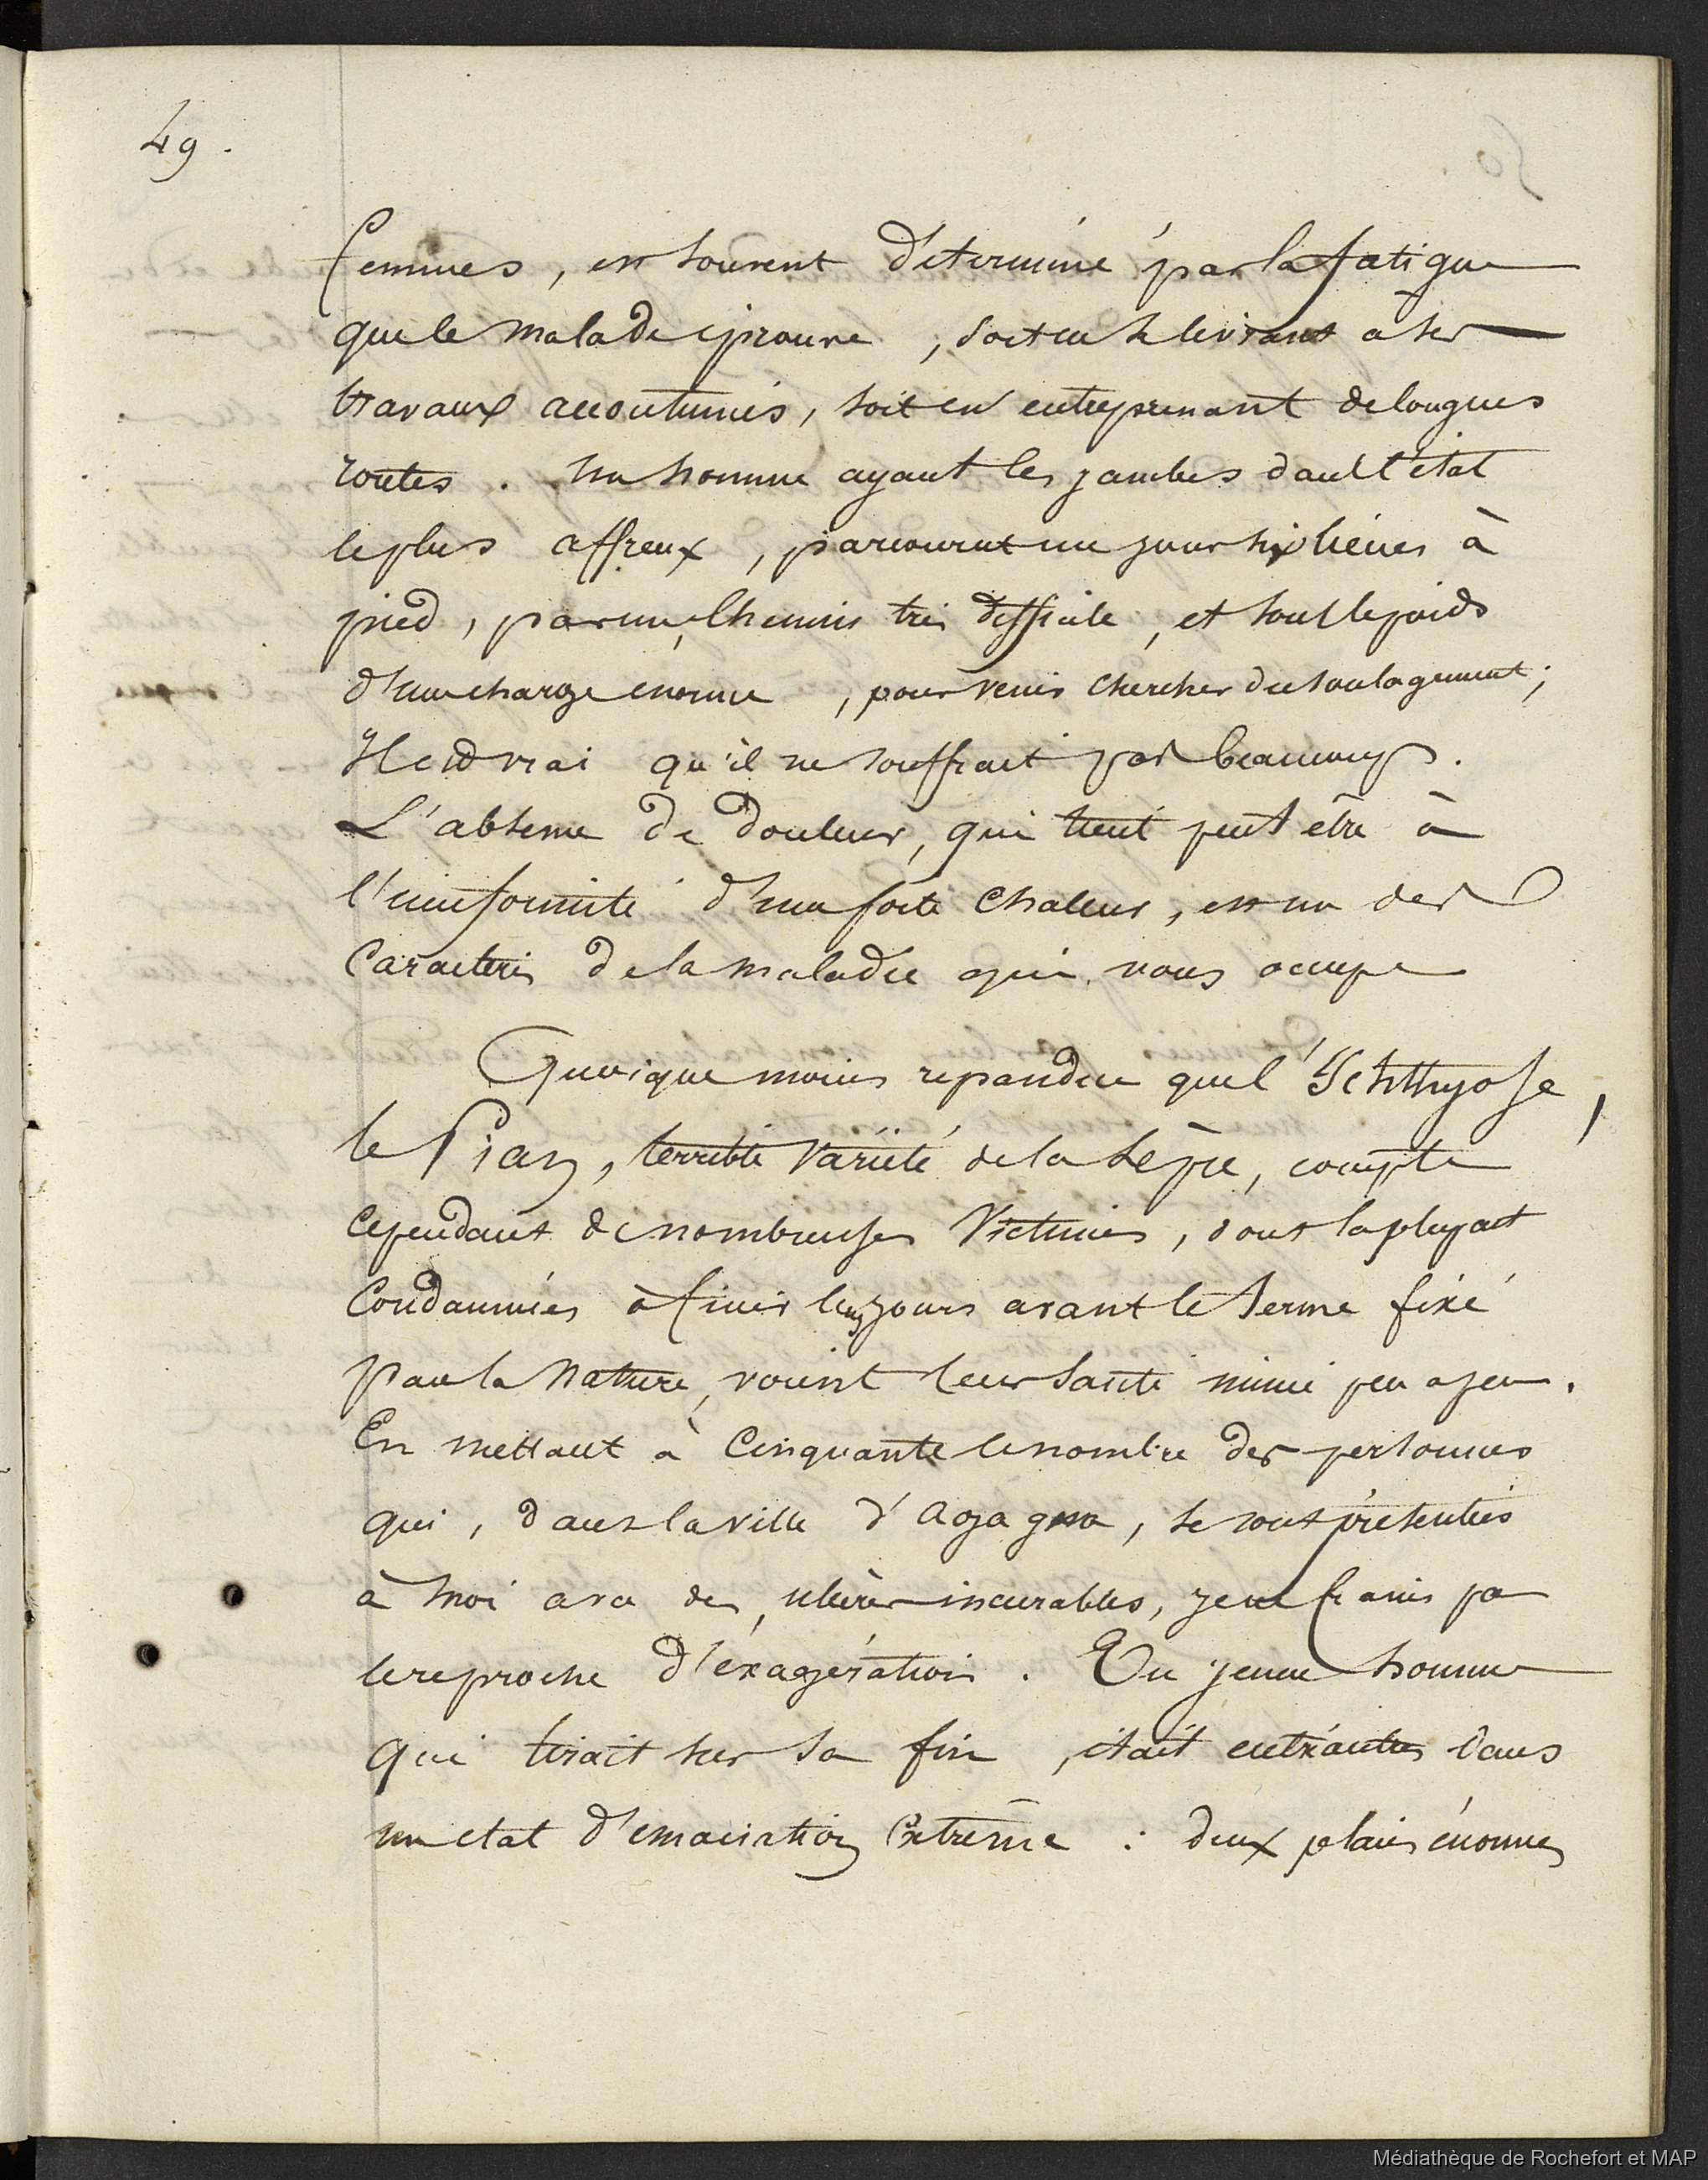 49.
femmes, est souvent déterminé par la fatigue
que le malade éprouve, soit en se livrant à ses
travaux accoutumés, soit en entreprenant de longues
routes. Un homme ayant les jambes dans l'état
le plus affreux, parcourut un jour six lieues à
pied, par un chemin très difficile, et sous le poids
d'une charge énorme, pour venir chercher du soulagement;
Il est vrai qu'il ne souffrait pas beaucoup.
L'absence de douleur, qui tient peut être à
l'uniformité d'une forte chaleur, est un des
caractères de la maladie qui nous occupe
Quoique moins repandue que l'Ichthyose,
le Pian, terrible variété de la lèpre, compte
cependant de nombreuses victimes, dont la plupart
condamnées à finir leurs jours avant le terme fixé
par la nature, voient leur santé minée peu à peu.
En mettant à cinquante le nombre des personnes
qui, dans la ville d'Agagna, se sont présentées
à moi avec des ulcères incurables, je ne crains pas
le reproche d'éxagération. Un jeune homme
qui tirait sur sa fin, était entr'autres dans
un etat d'emaciation extrême : deux plaies énormes
Médiathèque de Rochefort et MAP